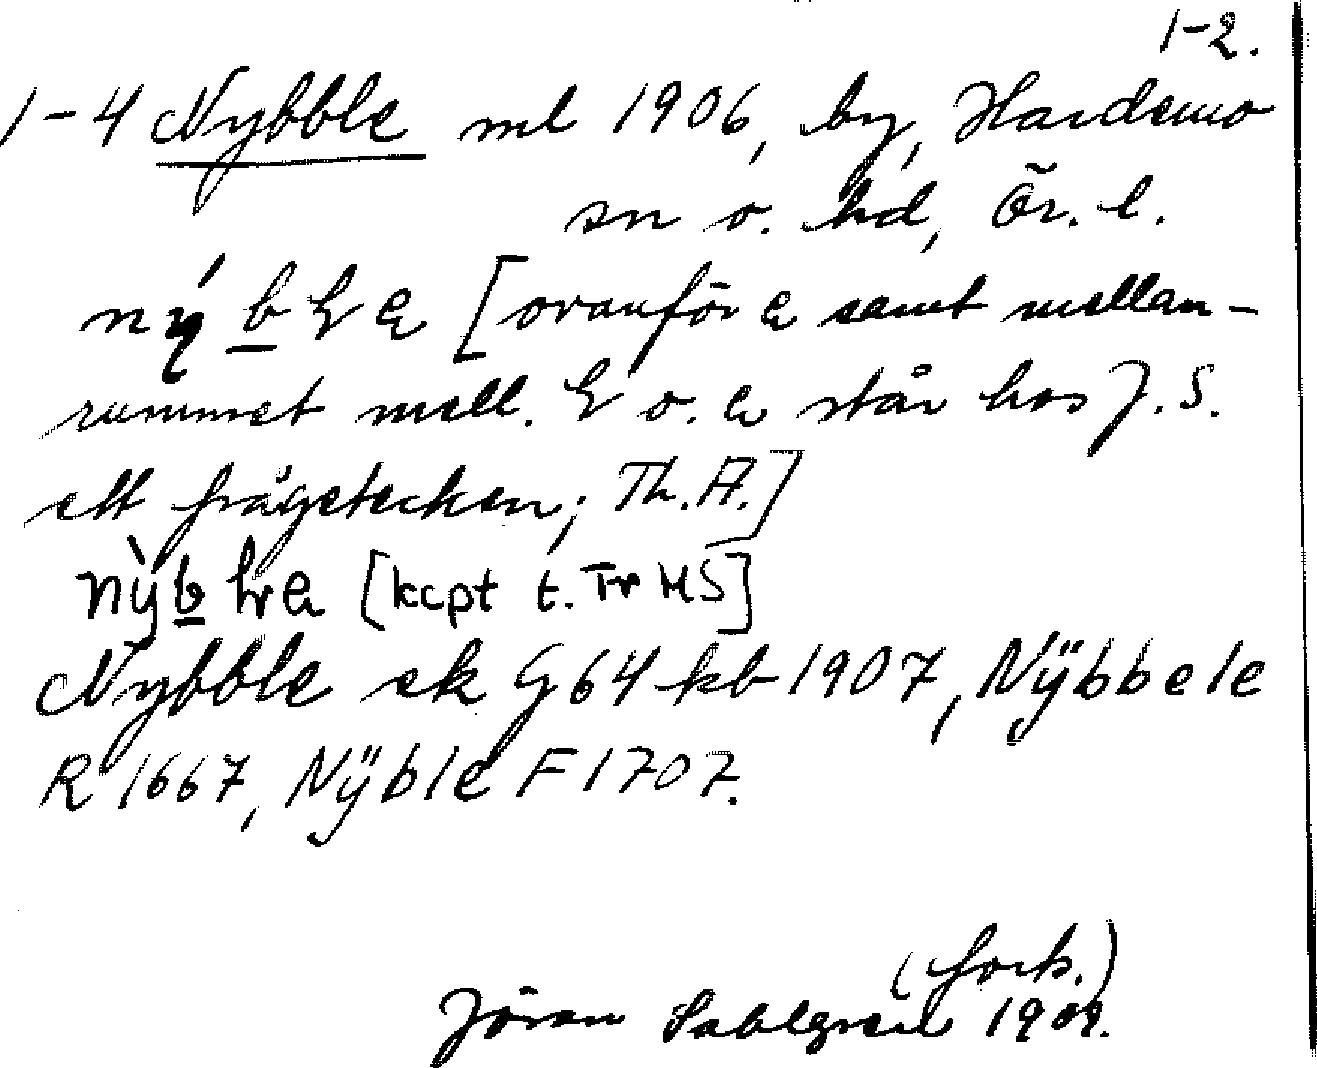 1-2.
1-4 Nybble ml 1906, by, Hardemo
sn o. hd, Ör. l.
[ovanför a samt mellan-
rummet mell. o. a står hos J. S.
ett frågetecken; Th. A.]
[kcpt t. Tr MS]
Nybble ek G 64 kb 1907, Nÿbbele
R 1667, Nÿble F 1707.
(fort.)
Jöran Sahlgren 1909.